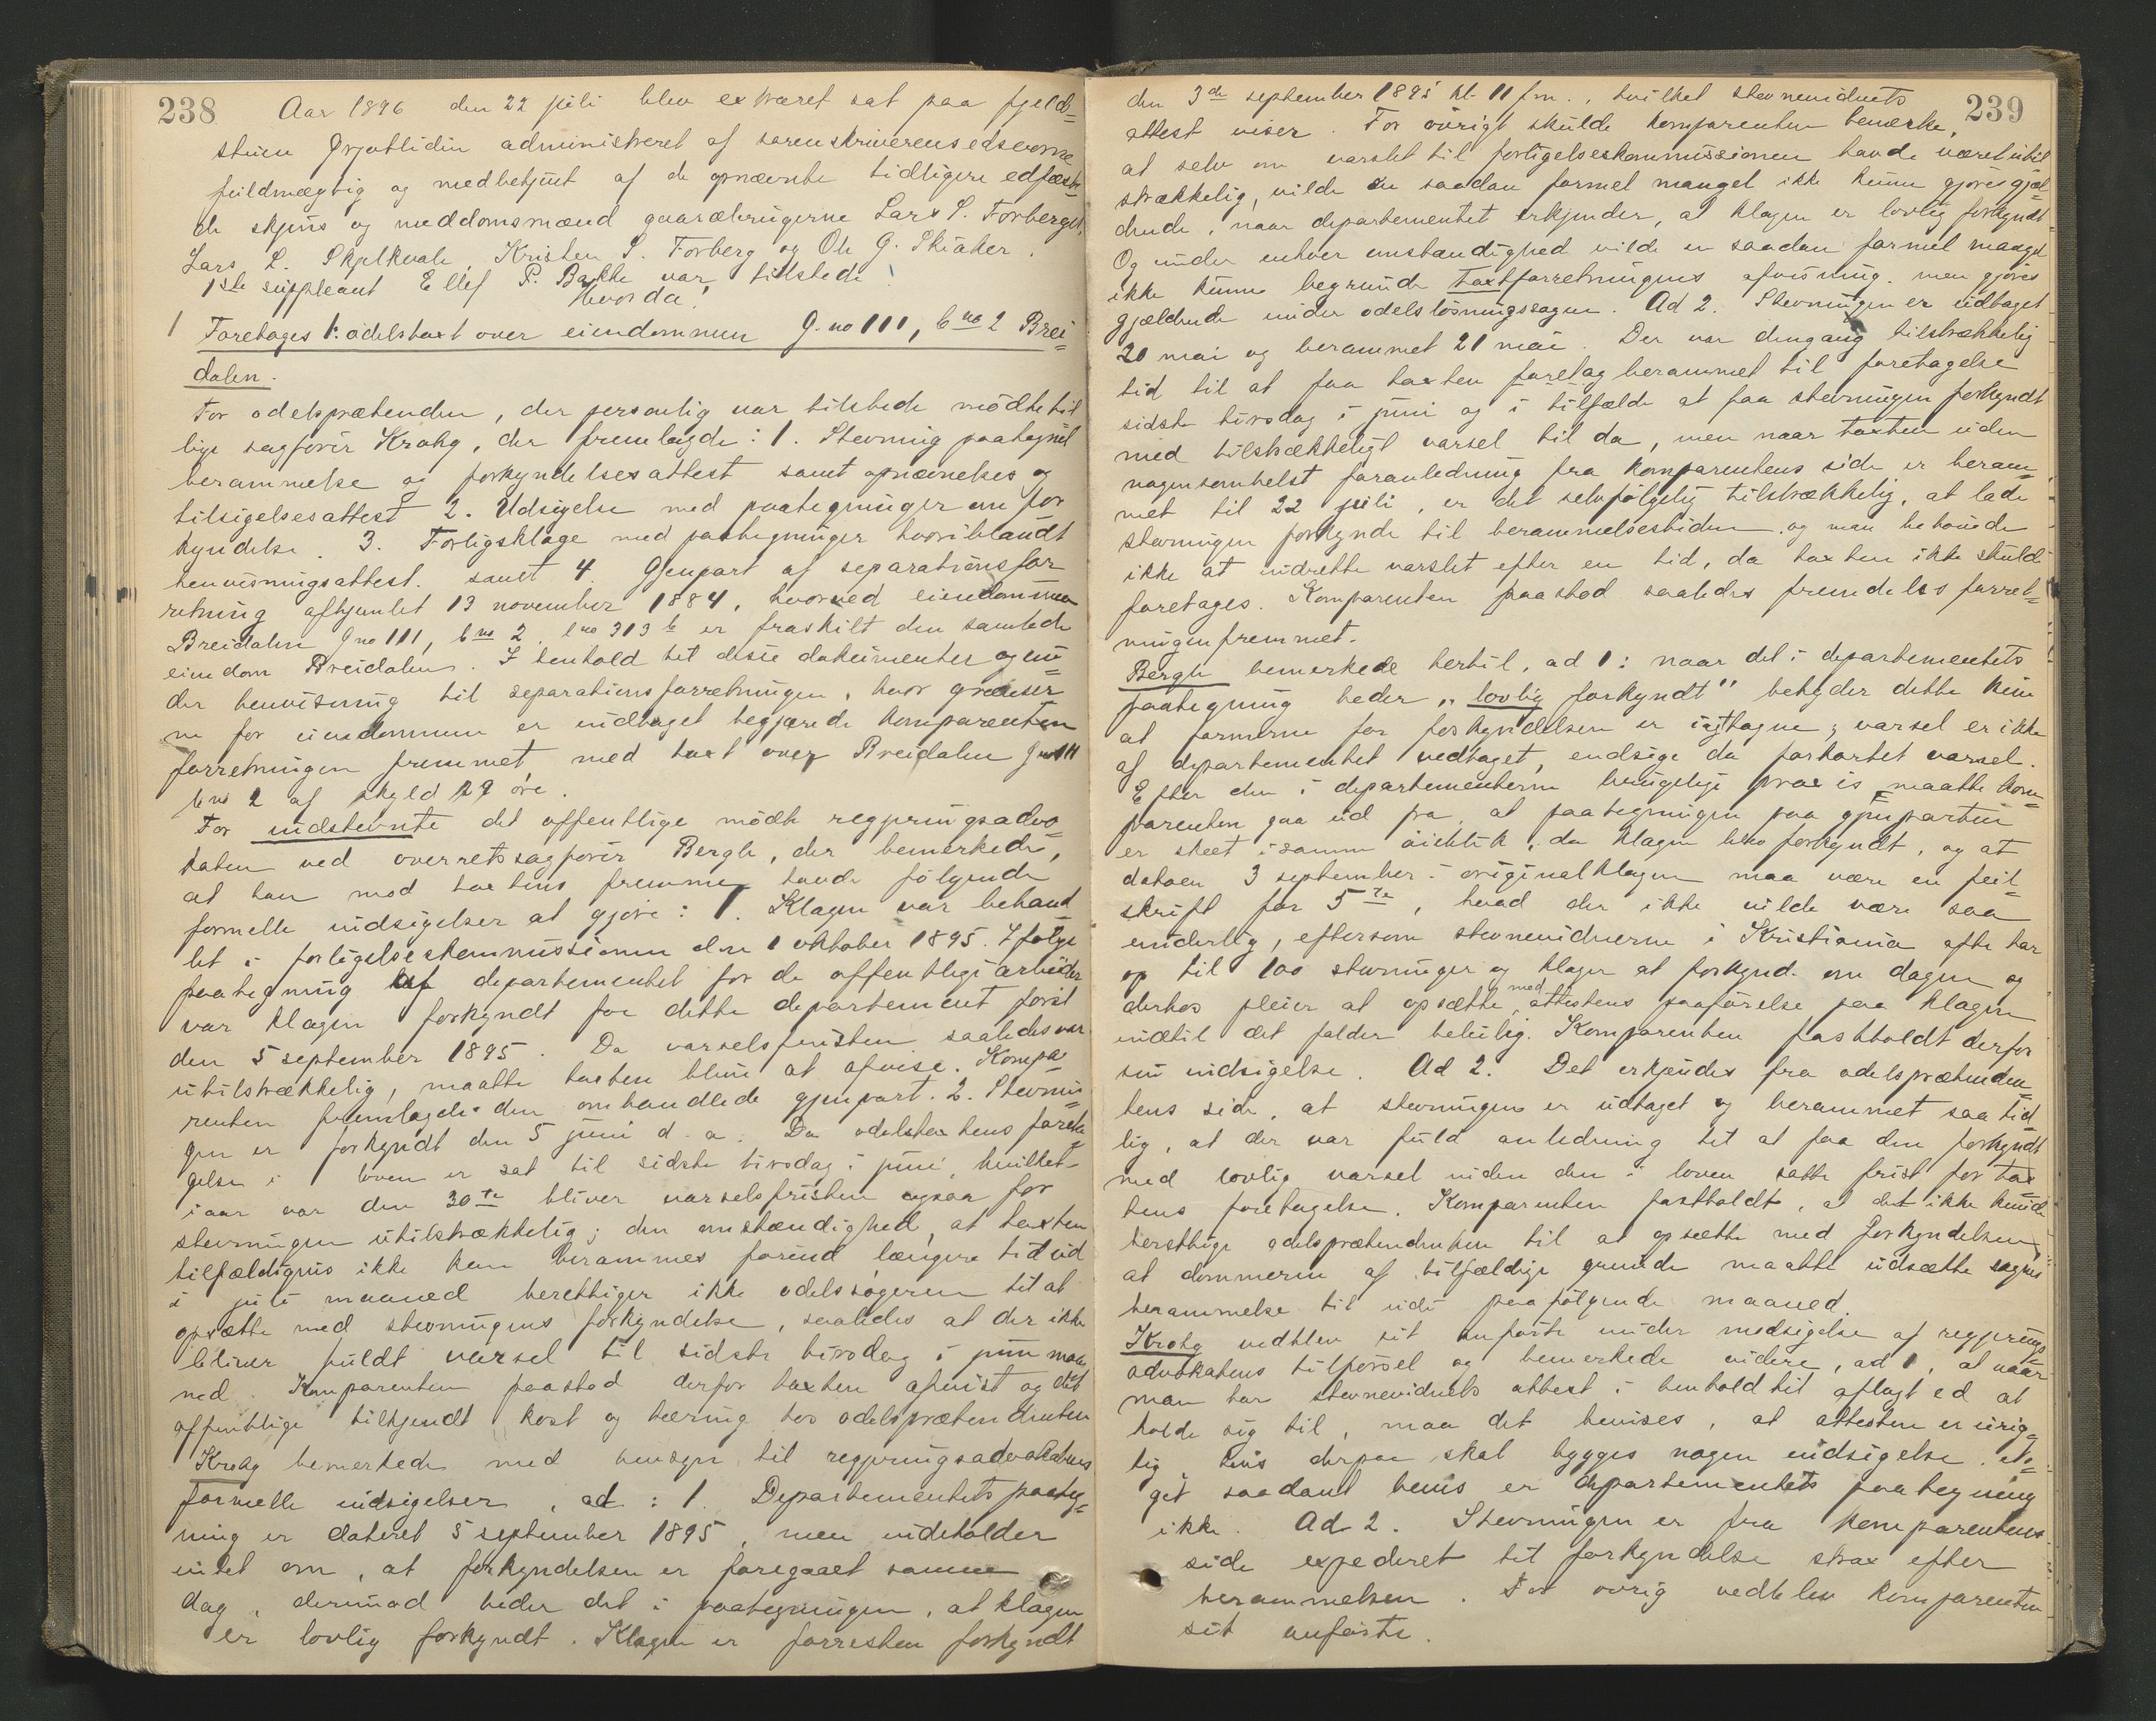 238
Aar 1896 den 22 juli blev extraret sat paa fjeld-
stuen Grjotlidin administreret af sorenskriverens edsvorne
fuldmægtig og medbetjent af de opnævnte tidligere edfæst
de skjøns og meddomsmænd gaardbrugerne Lars S. Forberget,
Lars L. Skjelkvale, Kristen S. Forberg og Ole G. Skiaker.
1ste suppleant Ellef P. Bakke var tilstede
Hvorda:
1 Foretages 1: odelstaxt over eiendommen G. no 111, b no 2 Brei=
dalen.
For odelsprætenden, der personlig var tilstede mødte til
lige sagfører Krohg, der fremlagde: 1. Stevning paategnet
berammelse og forkyndelsesattest samt opnævnelses og
tilsigelsesattest 2. Udsigelse med paategninger om for
kyndelse. 3. Forligsklage med paategninger hvoriblandt
henvisningsattest. samt 4. Gjenpart af separationsfor
retning afhjemlet 13 november 1884, hvorved eiendommen
Breidalen g no 111, b no 2, l no 313 b er fraskilt den samlede
eiendom Breidalen. I henhold til disse dokumenter og un=
der henvisning til separationsforretningen, hvor grænser
ne for eiendommen er indtaget begjærede komparenten
forretningen fremmet med taxt over Breidalen g no 111
b no 2 af skyld 22 øre.
For indstevnte det offentlige mødte regjeringsadvo
katen ved overretssagfører Bergh, der bemerkede,
at han mod taxtens fremme havde følgende
formelle indsigelser at gjøre: 1. Klagen var behand
let i forligelseskommissionen den 1 oktober 1895. Ifølge
paategning af departementet for de offentlige arbeider
var klagen forkyndt for dette departement først
den 5 september 1895. Da varselsfristen saaledes var
utilstrækkelig, maatte taxten blive at afvise. Kompa=
renten fremlagde den omhandlede gjenpart. 2. Stevnin
gen er forkyndt den 5 juni d. a. Da odelstaxtens foreta
gelse i loven er sat til sidste tirsdag i juni, hvilket
iaar var den 30te bliver varselsfristen ogsaa for
stevningen utilstrækkelig; den omstændighed, at taxten
tilfældigvis ikke kan berammes forind længere tid ud
i juli maaned berettiger ikke odelssøgeren til at
opsætte med stevningens forkyndelse, saaledes at der ikke
bliver fuldt varsel til sidste tirsdag i juni maa
ned. Komparenten paastod derfor taxten afvist og det
offentlige tilkjendt kost og tæring hos odelsprætendenten
Krohg bemerkede med hensyn til regjeringsadvokatens
formelle indsigelser, ad: 1. Departementets paateg=
ning er dateret 5 september 1895, men indeholder
intet om, at forkyndelsen er foregaaet samme
dag, derimod heder det i paategningen, at klagen
er lovlig forkyndt. Klagen er forresten forkyndt
239
den 3de september 1895 kl. 11 fm., hvilket stevnevidnets
attest viser. For øvrigt skulde komparenten bemerke,
at selv om varslet til forligelseskommissionen havde været util
strækkelig, vilde en saadan formel mangel ikke kunne gjøres gjæl
dende, naar departementet erkjender, at klagen er lovlig forkyndt.
Og under enhver omstændighed vilde en saadan formel mangel
ikke kunne begrunde taxtforretningens afvisning. men gjøres
gjældende under odelsløsningssagen. Ad 2. Stevningen er udtaget
20 mai og berammet 21 mai. Der var dengang tilstrækkelig
tid til at faa taxten foretag berammet til foretagelse
sidste tirsdag i juni og i tilfælde at faa stevningen forkyndt
med tilstrækkeligt varsel til da, men naar taxten uden
nogensomhelst foranledning fra komparentens side er beram=
met til 22 juli, er det selvfølgelig tilstrækkelig, at lade
stevningen forkynde til berammelsestiden og man behøvede
ikke at indrette varslet efter en tid, da taxten ikke skuld
foretages. Komparenten paastod saaledes fremdeles forret=
ningen fremmet.
Bergh bemerkede hertil, ad 1: naar det i departementets
paategning heder „lovlig forkyndt" betyder dette kun
at formerne for forkyndelsen er iagttagne; varsel er ikke
af departementet vedtaget, endsige da forkortet varsel.
Efter den i departementerne brugelige praxis maatte kom=
parenten gaa ud fra, at paategningen paa gjenparten
er skeet i samme øieblik, da klagen blev forkyndt, og at
datoen 3 september i originalklagen maa være en feil=
skrift for 5te, hvad der ikke vilde være saa
underlig, eftersom stevnevidnerne i Kristiania ofte har
op til 100 stevninger og klager at forkynde om dagen og
derhos pleier at opsætte med attestens paaførelse paa klagen
indtil det falder beleilig. Komparenten fastholdt derfor
sin indsigelse. Ad 2. Det erkjendes fra odelsprætenden
tens side, at stevningen er udtaget og berammet saa tid
lig, at der var fuld anledning til at faa den forkyndt
med lovlig varsel inden den i loven satte frist for tax
tens foretagelse. Komparenten fastholdt, at det ikke kunde
berettige odelsprætendenten til at opsætte med forkyndelsen,
at dommeren af tilfældige grunde maatte udsætte sagens
berammelse til ud i paafølgende maaned.
Krohg vedblev sit anførte under modsigelse af regjerings
advokatens tilførsel og bemerkede videre, ad 1, at naar
man har stevnevidnets attest i henhold til aflagt ed at
holde sig til, maa det bevises, at attesten er urig=
tig hvis derpaa skal bygges nogen indsigelse. No=
get saadant bevis er departementets paategning
ikke. Ad 2. Stevningen er fra komparentens
side expederet til forkyndelse strax efter
berammelsen. For øvrig vedblev komparenten
sit anførte.